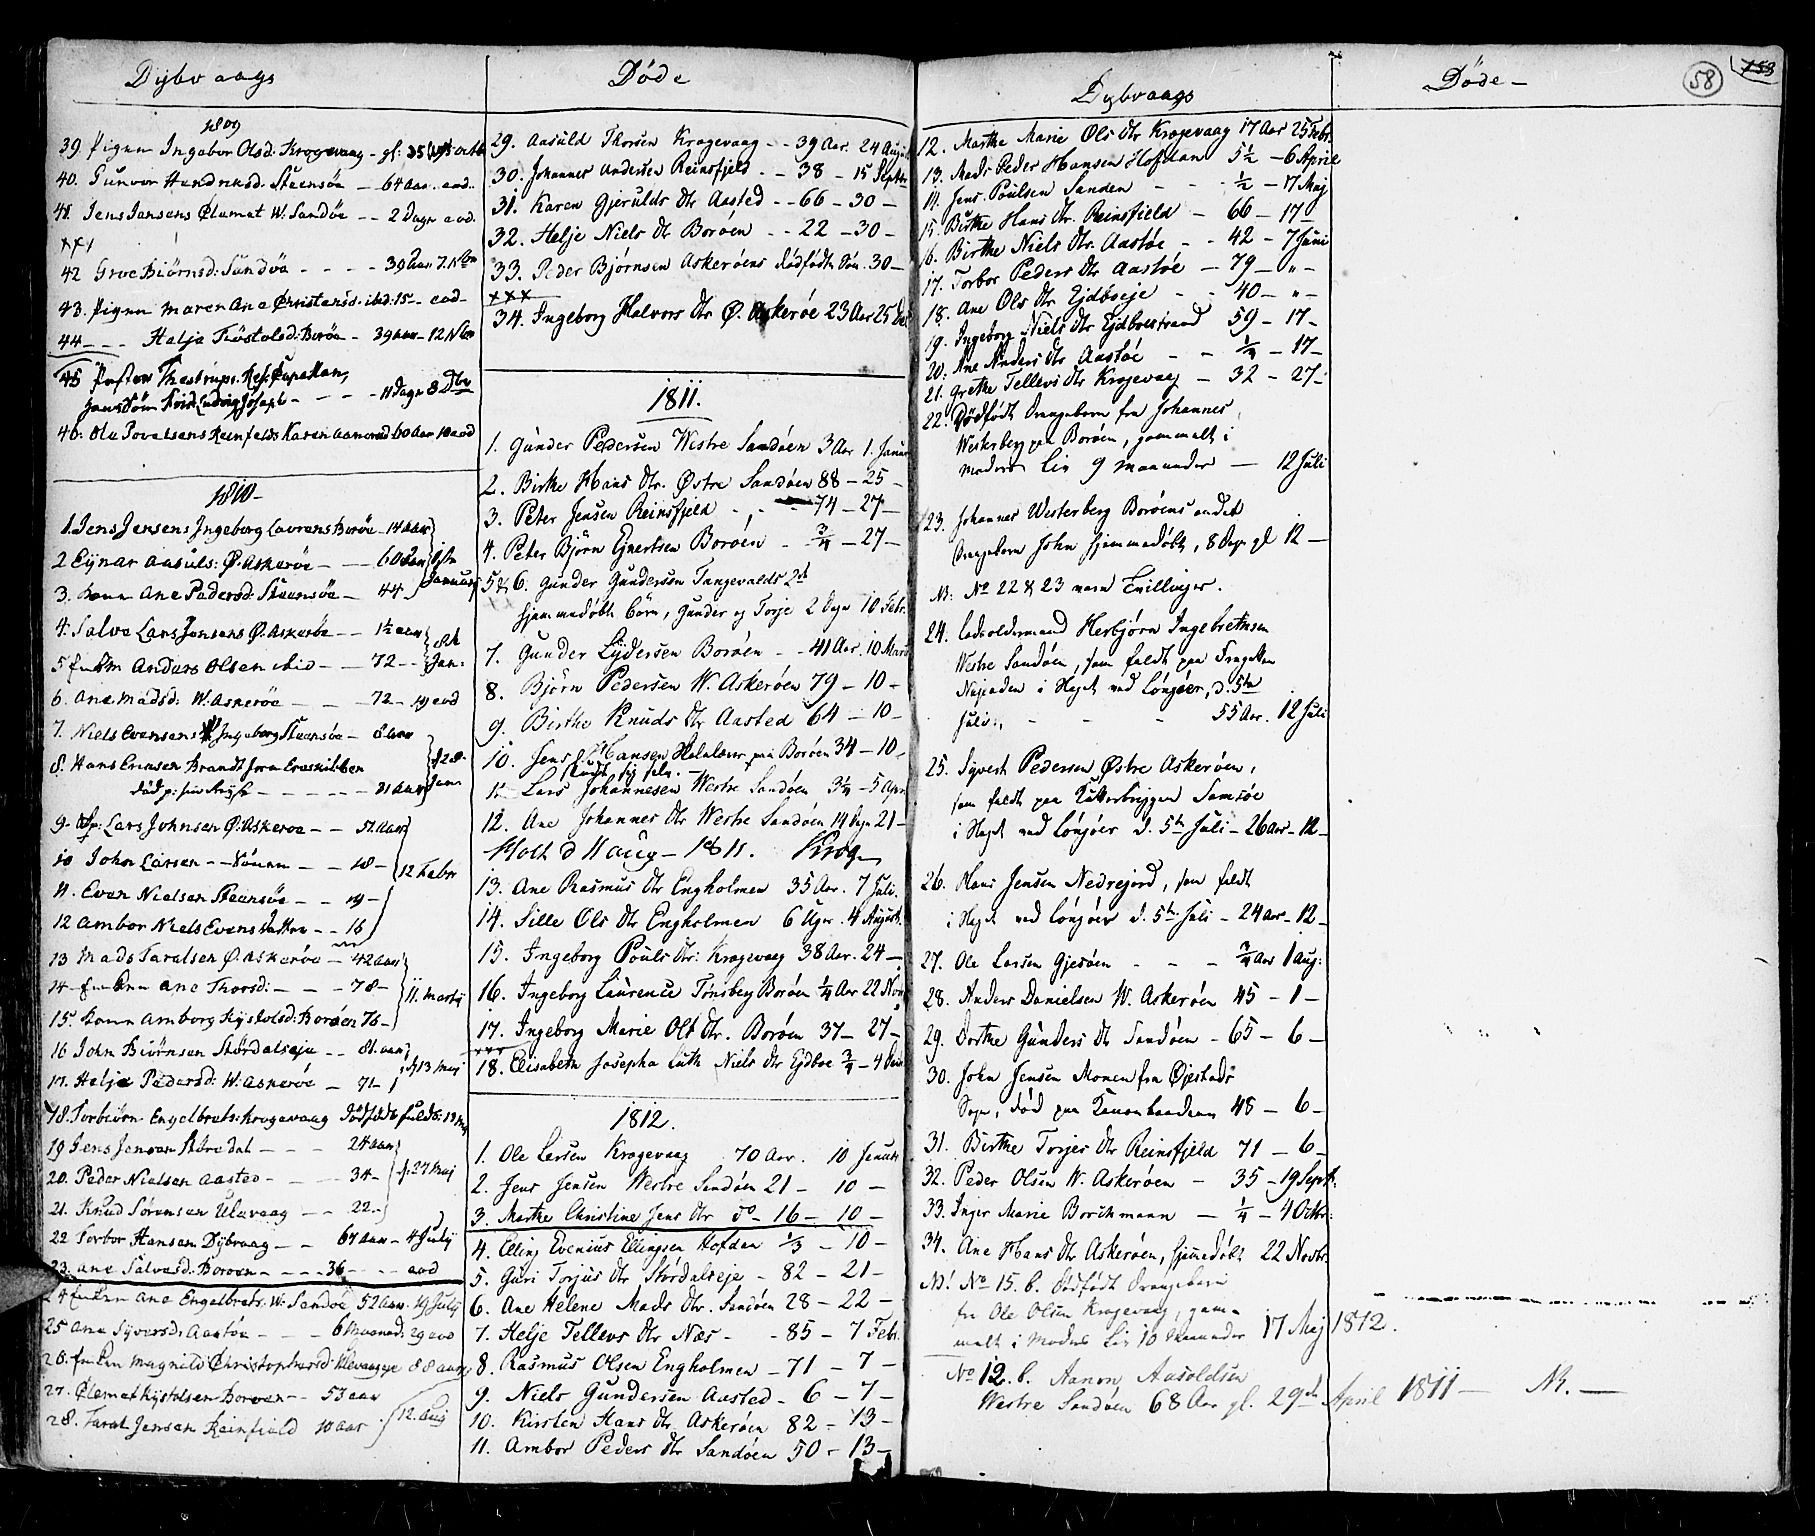 Dybvaags
Døde
1809
39. Pigen Ingebor Olsd: Krogevaag - gl: 35
40. Gunvor Hendriksd. Steensøe - 64 aar. eod.
41. Jens Jensens Clemet W. Sandøe - - 2 Dage eod.
42 Groe Biørnsd: Sandøe - - - - 39 Aar 7. Nbr
43. Pigen Maren Ane Christensd: ibid: 15 - eod -
44 - - - Helje Tøstolsd: Borøe - 39 aar - 12 Nbr
45 Pastor Thestrups Res: Capellan,
Ludvig Joseph - - - - 11 Dage 8 Dbr
46. Ole Povelsens Reinfelds Karen 60 Aar 10 eod
1810 -
1. Jens Jensens Ingeborg Laurens Borøe - 14 aar
2 Eynar Aasuls: Ø. Askerøe - - 60 Aar
3. Konen Ane Pedersd: Steensøe - 44 - Januar
4. Salve Lars Jensens Ø. Askerøe - - 1½ aar
5 Anders Olsen ibid - - 72 - - Jan.
6. Ane Madsd: W. Askerøe - - - 72 - 19 eod
7. Niels Evensens Ingeborg Steensøe - 6 aar
8. Hans Ericksen Brandt
31 Aar Jan
9. Lars Johnsen Ø. Askeroe - - 51 Aar
10 John Larsen - - Sønnen - - 18 - 12 Febr
11. Even Nielsen Steensøe - - 19 -
12 Ambor Niels Evens Datter - - 16
13 Mads Taralsen Ø. Askerøe - 42 Aar
14 - Enken Ane Thorsd: - - - 78 - 11. Martij
15. Konen Amborg Kistolsd: Borøen 76 -
16 John Biørnsen Størdalseje - - 81. aar
17. Helje Pedersd: W. Askerøe - 71 - 13 Maj
18. Torbiørn Engelbrets: Krogevaag Dødfødt 13 Maj
19 Jens Jensen Støredal - - - 24 aar
20. Peder Nielsen Aasted - - - 34 - 27 Maj
21. Knud Sørensen Ulevaag - - 22 -
22 Torbor Hansen Dybvaag - - 64 aar - 4 July
23. Ane Salvesd: Borøen - - - 36 - - - eod
24 Enken Ane Engelbrets. W. Sandøe 52 Aar. 19 July
25 Ane Syversd: Aastøe - - - 6 Maaned: 29 eod
26. Enken Magnild Christophersd: 88 aar
27. Clemet Kistolsen Borøen - - 53 aar
28. Taral Jensen Reinfield 10 aar 12. Aug
29. Aasuld Thorsen Krogevaag - - 39 Aar. 24 August
30. Johannes Andersen Reinsfjeld - - 38 - 15 Septbr
31. Karen Gjerulds Dtr Aasted - - 66 - 30 -
32. Helje Niels Dtr Borøen - - 22 - 30 -
33. Peder Bjørnsen Askerøens dødfødte Søn. 30 -
34. Ingeborg Halvors Dtr Ø. Askerøe 23 Aar 25 Dec
1811.
1. Gunder Pedersen Westre Sandøen 3 Aar 1. Januar
2. Birthe Hans Dtr. Østre Sandøen 88 - 25 -
3. Peter Jensen Reinsfjeld - - - 74 - 27 -
4. Peter Bjørn Ejnertsen Borøen - ¾ - 27 -
5 & 6. Gunder Gundersen Tangevalds 2de
hjemmedøbte Børn, Gunder og Torje 2 Dage 10 Febr.
7. Gunder Lydersen Borøen - - 41 Aar. 10 Marts
8. Bjørn Pedersen W. Askerøen 79 - 10 -
9. Birthe Knuds Dtr Aasted 64 - 10 -
10. Jens Hansen paa Borøen 34 - 10 -
11 Lars Johannesen Westre Sandøen 3¼ - 5 Apr
12. Ane Johannes Dtr Westre Sandøen 14 Dage 21 -
Holt d 11 Aug - 1811. Krog
13. Ane Rasmus Dtr Engholmen 35 Aar. 7 Juli.
14. Sille Ols Dtr Engholmen 6 Uger. 4 August.
15. Ingeborg Pouls Dtr: Krogevaag 38 Aar. 24 -
16. Ingeborg Laurence Tønsberg Borøen ¼ Aar 22 Nov
17. Ingeborg Marie Ols Dtr. Borøen 37 - 27 -
18. Elisabeth Josepha Luth Niels Dtr Ejdboe ¾ - 4
1812.
1. Ole Larsen Krogevaag 70 Aar. 10 Januar
2. Jens Jensen Westre Sandøen 21 - 10 -
3. Marthe Christine Jens Dtr do - 16 - 10 -
4. Elling Evenius Ellingsen Hofdan ⅓ - 10 -
5. Guri Torjus Dtr Stórdalseje - 82 - 21 -
6. Ane Helene Mads Dtr. Sandøen 28 - 22 -
7. Helje Tellevs Dtr Næs - - 85 - 7 Febr.
8. Rasmus Olsen Engholmen - 71 - 7 -
9. Niels Gundersen Aasted - 6 - 7 -
10. Kirsten Hans Dtr Askerøen 82 - 13 -
11. Ambor Peders Dtr Sandøen 50 - 13 -
Dybvaags
Døde -
58
12. Marthe Marie Ols Dtr Krogevaag 17 Aar 25 Febr.
13. Mads Peder Hansen Hofdan 5½ - 6 April
14. Jens Poulsen Sanden - - - ½ - 17 Maj
15. Birthe Hans Dtr. Reinsfield - 66 - 17 -
16. Birthe Niels Dtr. Aastøe - - 42 - 7 Juni
17. Torbor Peders Dtr Aastøe - 79 - " -
18. Ane Ols Dtr Ejdboeje - - 40 - " -
19. Ingeborg Niels Dtr Ejdboestrand 59 - 17 -
20. Ane Anders Dtr Aastøe - - ¼ - 17 -
21. Grethe Tellevs Dtr Krogevaag - 32 - 27 -
22. Dødfødt Drengebarn fra Johannes
Westerberg paa Borøen, gammelt i
Moders Liv 9 Maaneder - 12 Juli
23. Johannes Westerberg Borøens andet
Drengebarn John hjemmedøbt, 8 Dage gl 12 -
NB: No 22 & 23 vare Tvillinger.
24. Ledsoldermand Herbjørn Ingebretnsen
Westre Sandøen, som faldt paa Fregatten
Najaden i Slaget ved Lóngóer, d. 5te
Juli, - - - 55 Aar. 12 Juli
25. Syvert Pedersen Østre Askerøen,
som faldt paa Kutterbriggen Samsøe
i Slaget ved Lóngóer d. 5te Juli - 26 Aar - 12 -
26. Hans Jensen Nedrejord, som faldt
i Slaget ved Lóngóer d. 5te Juli - 24 Aar - 12 -
27. Ole Larsen Gjesøen - - - ¾ Aar 1 Aug:
28. Anders Danielsen W. Askerøen 45 - 1 -
29. Dorthe Gunders Dtr Sandøen - 65 - 6 -
30. John Jensen Monen fra Øjestads
Sogn, død paa Kanonbaadene 48 - 6 -
31. Birthe Torjes Dtr Reinsfjeld 71 - 6 -
32. Peder Olsen W. Askerøen - 35 - 19 Sept.
33. Inger Marie Borchmann - ¼ - 4 Octbr:
34. Ane Hans Dtr Askerøen, hjemedøbt 22 Novbr.
NB! No 15. b. Dødfødt Drengebarn
fra Ole Olsen Krogevaag, gam-
melt i Moders Liv 10 Maaneder 17 Maj 1812.
No 12. b. Aanon Aasoldsen
Westre Sandøen 68 Aar gl. 29de April 1811 - NB. -